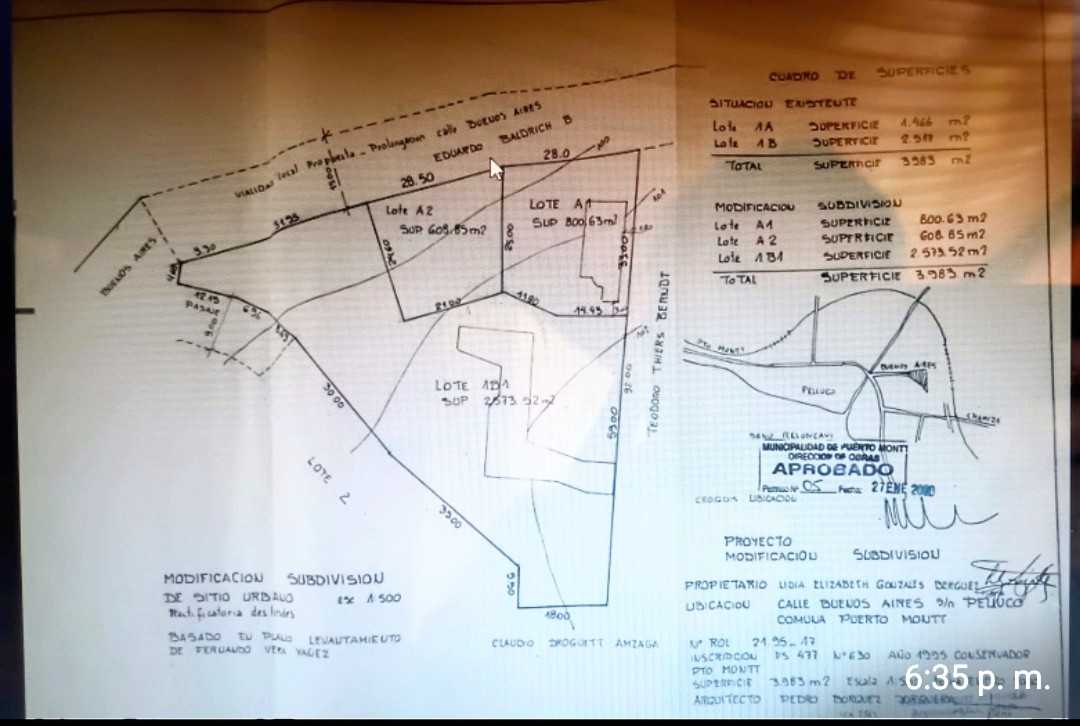 CUADRO DE SUPERFICIES
SITUACION EXISTENTE
Lote 1A SUPERFICIE 1.466 m2
Lote 1B SUPERFICIE 2.517 m2
TOTAL SUPERFICIE 3983 m2
MODIFICACION SUBDIVISION
Lote A1 SUPERFICIE 800.63 m2
Lote A2 SUPERFICIE 608.85 m2
Lote 1B1 SUPERFICIE 2.573.52 m2
TOTAL SUPERFICIE 3.983 m2
VIALIDAD local Propuesta - Prolongacion calle BUENOS AIRES
EDUARDO BALDRICH B
28.50
28.0
Lote A2
SUP 608.85 m2
LOTE A1
SUP 800.63 m2
BUENOS AIRES
9.30
12.15
PASAJE
21.00
11.80
14.43
33.00
TEODORO THIERS BERNDT
LOTE 1B1
SUP 2573.52 m2
30.00
LOTE 2
33.00
18.00
59.00
92.00
PTO MONTT
BUENOS AIRES
PELLUCO
CHAMIZA
SENO RELONCAVI
MUNICIPALIDAD DE PUERTO MONTT
DIRECCION DE OBRAS
APROBADO
Permiso Nº 05 Fecha: 27 ENE 2000
CROQUIS UBICACION
MODIFICACION SUBDIVISION
DE SITIO URBANO esc 1:500
Rectificatoria deslindes
BASADO EN PLANO LEVANTAMIENTO
DE FERNANDO VERA YAÑEZ
CLAUDIO DROGUETT AMZAGA
PROYECTO
MODIFICACION SUBDIVISION
PROPIETARIO LIDIA ELIZABETH GONZALES BERGUEZ
UBICACION CALLE BUENOS AIRES s/n PELLUCO
COMUNA PUERTO MONTT
Nº ROL 2195-17
INSCRIPCION FS 477 Nº 630 AÑO 1995 CONSERVADOR
PTO MONTT
SUPERFICIE 3.983 m2 Escala
ARQUITECTO PEDRO BORQUEZ
6:35 p. m.